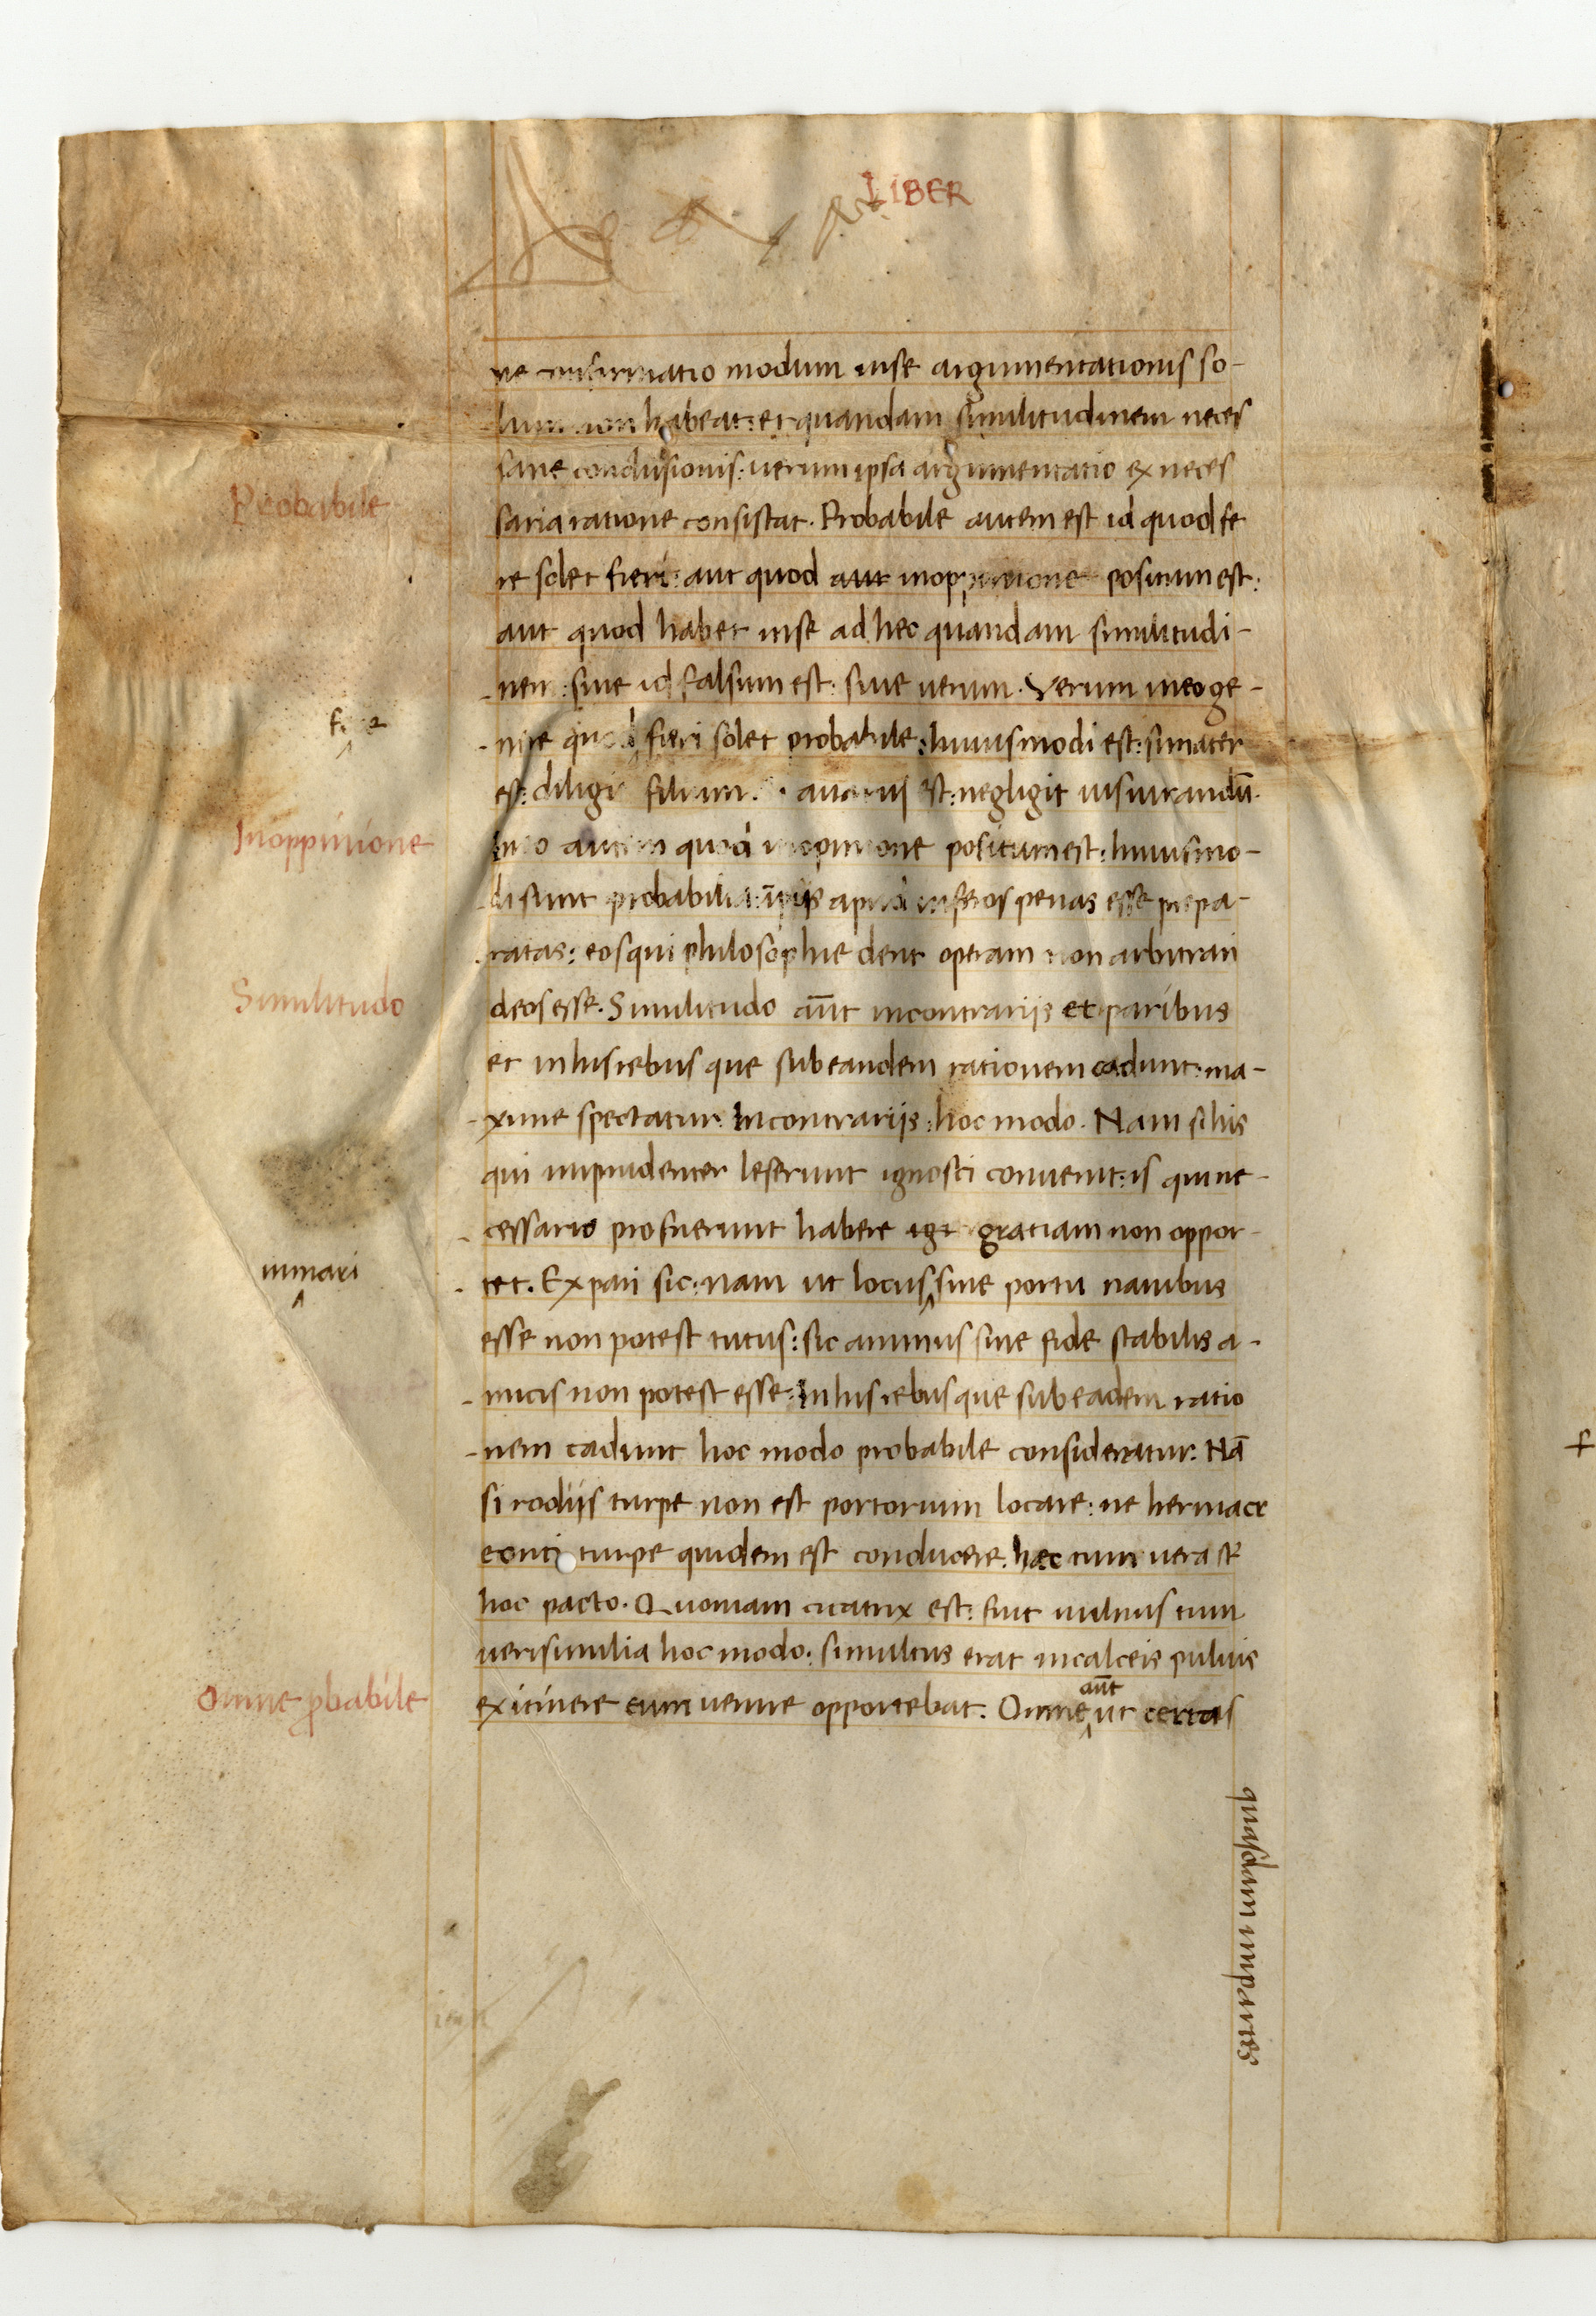 LIBER
ne confirmatio modum inse argumentationis so-
lum non habeat: et quandam similitudinem neces
sarie conclusionis: uerum ipsa argumentatio ex neces
Probabile
saria ratione consistat. Probabile autem est id quod fe
re solet fieri: aut quod aut inoppinione positum est:
aut quod habet inse ad hec quandam similitudi-
nem: siue id falsum est: siue uerum. Verum in eo ge-
nere quod fieri solet probabile: huiusmodi est: si mater
est: diligit filium. auarus ēst: negligit iusiurandū.
Inoppinione
In eo autem quod inopinione positum est: huiusmo-
di sunt probabilia: īpiis apud inferos penas esse prepa-
ratas: eos qui philosophie dent operam non arbitrari
Similitudo
deos esse. Similitudo aūt in contrariis et paribus
et in his rebus que sub eandem rationem cadunt: ma-
xime spectatur. In contrariis: hoc modo. Nam si his
qui imprudenter leserunt ignosci conuenit: is qui ne-
cessario profuerunt habere gratiam non oppor-
inmari
tet. Ex pari sic: nam ut locus siue portu nauibus
esse non potest tutus: sic animus sine fide stabilis a-
micis non potest esse: In his rebus que sub eadem ratio
nem cadunt hoc modo probabile consideratur: Nā
si rodiis turpe non est portorium locare: ne hermacr
eonti turpe quidem est conducere. hec tum uera st̄
hoc pacto. Quoniam cicatrix est: fuit uulnus tum
uerisimilia hoc modo: si multus erat in calceis puluis
Omne pbabile
ex itinere eum uenire opportebat. Omne aūt ut certas
quasdam impartes